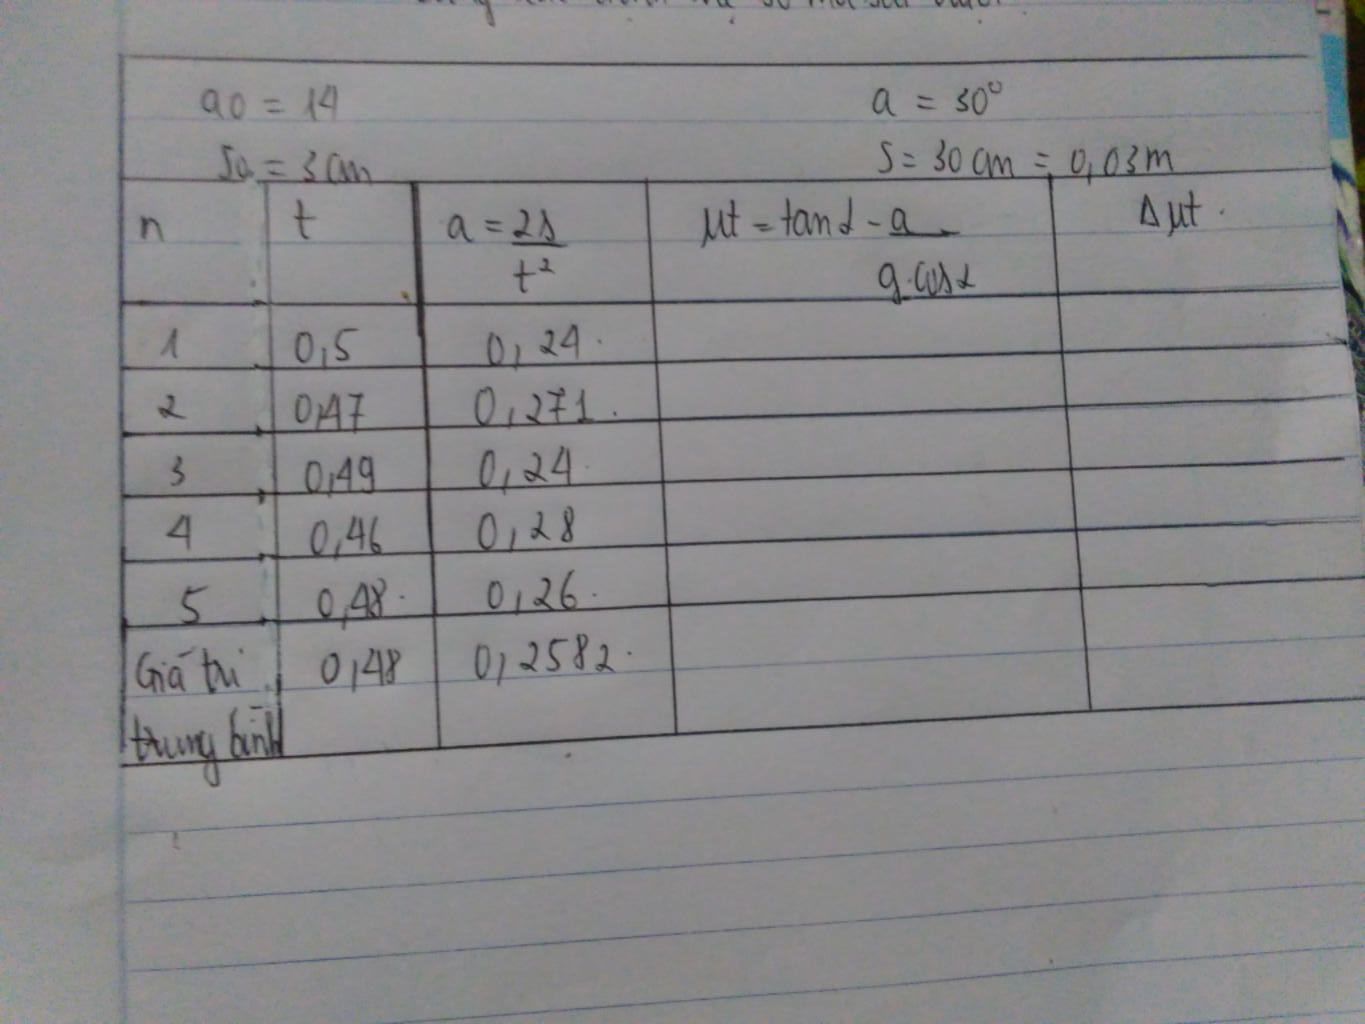 a0 = 14
a = 30°
S0 = 3 cm
S = 30 cm = 0,03m
n t a = 2s/t² μt = tanα - a/g.cosα Δμt.
1 0,5 0,24.
2 0,47 0,271.
3 0,49 0,24.
4 0,46 0,28
5 0,48. 0,26.
Giá trị 0,48 0,2582.
trung bình